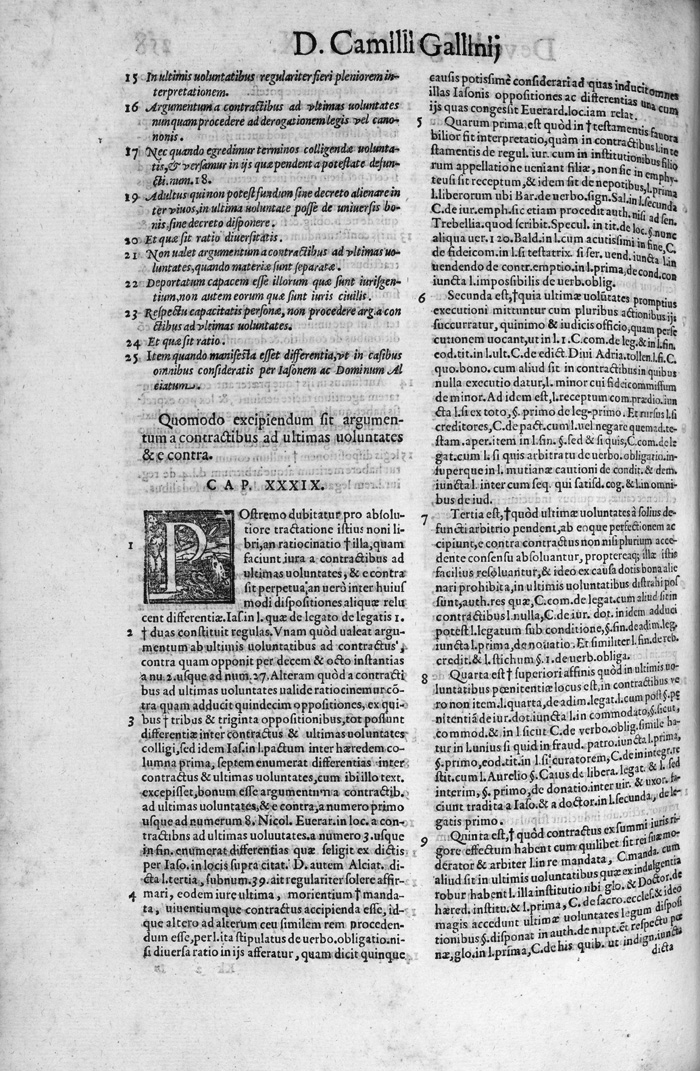 D. Camilli Gallinij
15 In ultimis uoluntatibus regulariter fieri pleniorem in-
terpretationem.
16 Argumentum a contractibus ad vltimas uoluntates
nunquam procedere ad derogationem legis vel cano-
nonis.
17 Nec quando egredimur terminos colligendæ uolunta-
tis, & versamur in ijs quæ pendent a potestate defun-
cti. num. 18.
19 Adultus qui non potest fundum sine decreto alienare in-
ter viuos, in ultima uoluntate posse de uniuersis bo-
nis, sine decreto disponere.
20 Et quæ sit ratio diuersitatis.
21 Non ualet argumentum a contractibus ad vltimas uo-
luntates, quando materiæ sunt separatæ.
22 Deportatum capacem esse illorum quæ sunt iuris gen-
tium, non autem eorum quæ sunt iuris ciuilis.
23 Respectu capacitatis personæ, non procedere arg. a con
ctibus ad vltimas uoluntates.
24 Et quæ sit ratio.
25 Item quando manifesta esset differentia, vt in casibus
omnibus consideratis per Iasonem ac Dominum Al
ciatum.
Quomodo excipiendum sit argumen-
tum a contractibus ad ultimas uoluntates
& e contra.
CAP. XXXIX.
POstremo dubitatur pro absolu-
tiore tractatione istius noni li-
1 bri, an ratiocinatio † illa, quam
faciunt iura a contractibus ad
ultimas uoluntates, & e contra
sit perpetua, an uerò inter huius
modi dispositiones aliquæ relu
cent differentiæ. Ias. in l. quæ de legato de legatis 1.
2 † duas constituit regulas. Vnam quòd ualeat argu-
mentum ab ultimis uoluntatibus ad contractus,
contra quam opponit per decem & octo instantias
a nu. 2. usque ad num. 27. Alteram quòd a contracti
bus ad ultimas uoluntates ualide ratiocinemur cō-
tra quam adducit quindecim oppositiones, ex qui-
3 bus † tribus & triginta oppositionibus, tot possunt
differentiæ inter contractus & ultimas uoluntates
colligi, sed idem Ias. in l. pactum inter hæredem co-
lumna prima, septem enumerat differentias inter
contractus & ultimas uoluntates, cum ibi illo text.
excepisset, bonum esse argumentum a contractib.
ad ultimas uoluntates, & e contra, a numero primo
usque ad numerum 8. Nicol. Euerar. in loc. a con-
tractibus ad ultimas uoluutates. a numero 3. usque
in fin. enumerat differentias quæ seligit ex dictis
per Iaso. in locis supra citat. D. autem Alciat. di-
cta l. tertia, sub num. 39. ait regulariter solere affir-
4 mari, eodem iure ultima, morientium † manda-
ta, uiuentiumque contractus accipienda esse, id-
que altero ad alterum ceu similem rem proceden-
dum esse, per l. ita stipulatus de uerbo. obligatio. ni-
si diuersa ratio in ijs afferatur, quam dicit quinque
causis potissimè considerari ad quas inducit omnes
illas Iasonis oppositiones ac differentias una cum
ijs quas congessit Euerard. loc. iam relat.
5 Quarum prima, est quòd in † testamentis fauora
bilior sit interpretatio, quàm in contractibus l. in te
stamentis de regul. iur. cum in institutionibus filio
rum appellatione ueniant filiæ, non sic in emphy-
teusi sit receptum, & idem sit de nepotibus, l. prima
l. liberorum ubi Bar. de uerbo. sign. Sal. in l. secunda
C. de iur. emph. sic etiam procedit auth. nisi ad sen.
Trebellia. quod scribit. Specul. in tit. de loc. §. nunc
aliqua uer. 120. Bald. in l. cum acutissimi in fine, C.
de fideicom. in l. si testatrix. si ser. uend. iuncta l. in
uendendo de contr. emptio. in l. prima, de cond. con
iuncta l. impossibilis de uerb. oblig.
6 Secunda est, † quia ultimæ uolũtates promptius
executioni mittuntur cum pluribus actionibus ijs
succurratur, quinimo & iudicis officio, quam perse
cutionem uocant, ut in l. 1. C. com. de leg. & in l. fin.
eod. tit. in l. ult. C. de edict. Diui Adria. tollen. l. fi. C.
quo. bono. cum aliud sit in contractibus in quibus
nulla executio datur, l. minor cui fideicommissum
de minor. Ad idem est, l. receptum com. prædio. iun
cta l. si ex toto, §. primo de leg. primo. Et rursus l. si
creditores, C. de pact. cum l. uel negare quemad. te-
stam. aper. item in l. sin. §. sed & si quis, C. com. de le
gat. cum l. si quis arbitratu de uerbo. obligatio. in-
super que in l. mutianæ cautioni de condit. & dem.
iuncta l. inter cum seq. qui satisd. cog. & l. in omni-
bus de iud.
7 Tertia est, † quòd ultimæ uoluntates à solius de-
functi arbitrio pendent, ab eoque perfectionem ac
cipiunt, e contra contractus non nisi plurium acce-
dente consensu absoluantur, proptereaq; illæ istis
facilius resoluantur, & ideo ex causa dotis bona alie
nari prohibita, in ultimis uoluntatibus distrahi pos
sunt, auth. res quæ, C. com. de legat. cum aliud sit in
contractibus l. nulla, C. de iur. dot. in idem adduci
potest l. legatum sub conditione, §. fin. de adim. leg.
iuncta l. prima, de nouatio. Et similiter l. fin. de reb.
credit. & l. stichum §. 1. de uerb. obliga.
8 Quarta est † superiori affinis quòd in ultimis uo-
luntatibus pœnitentiæ locus est, in contractibus ve
ro non item. l. quarta, de adim. legat. l. cum post §. pę
nitentiā de iur. dot. iuncta l. in commodato, §. sicut,
commod. & in l. sicut C. de uerb. oblig. simile ha-
tur in l. unius si quid in fraud. patro. iuncta l. prima,
§. primo, eod. tit. in l. si curatorem, C. de in integr. re
stit. cum l. Aurelio §. Caius de libera. legat. & l. sed
interim, §. primo, de donatio. inter uir. & uxor. fa-
ciunt tradita a Iaso. & a doctor. in l. secunda, de le-
gatis primo.
9 Quinta est, † quòd contractus ex summi iuris ri-
gore effectum habent cum quilibet sit rei suæ mo-
derator & arbiter l. in re mandata, C. manda. cum
aliud sit in ultimis uoluntatibus quæ ex indulgentia
robur habent l. illa institutio ubi glo. & Doctor. de
hæred. institu. & l. prima, C. de sacro. eccles. & ideo
magis accedunt ultimæ uoluntates legum disposi
tionibus §. disponat in auth. de nupt. et respectu pœ
næ, glo. in l. prima, C. de his quib. ut indign. iuncta
dicta